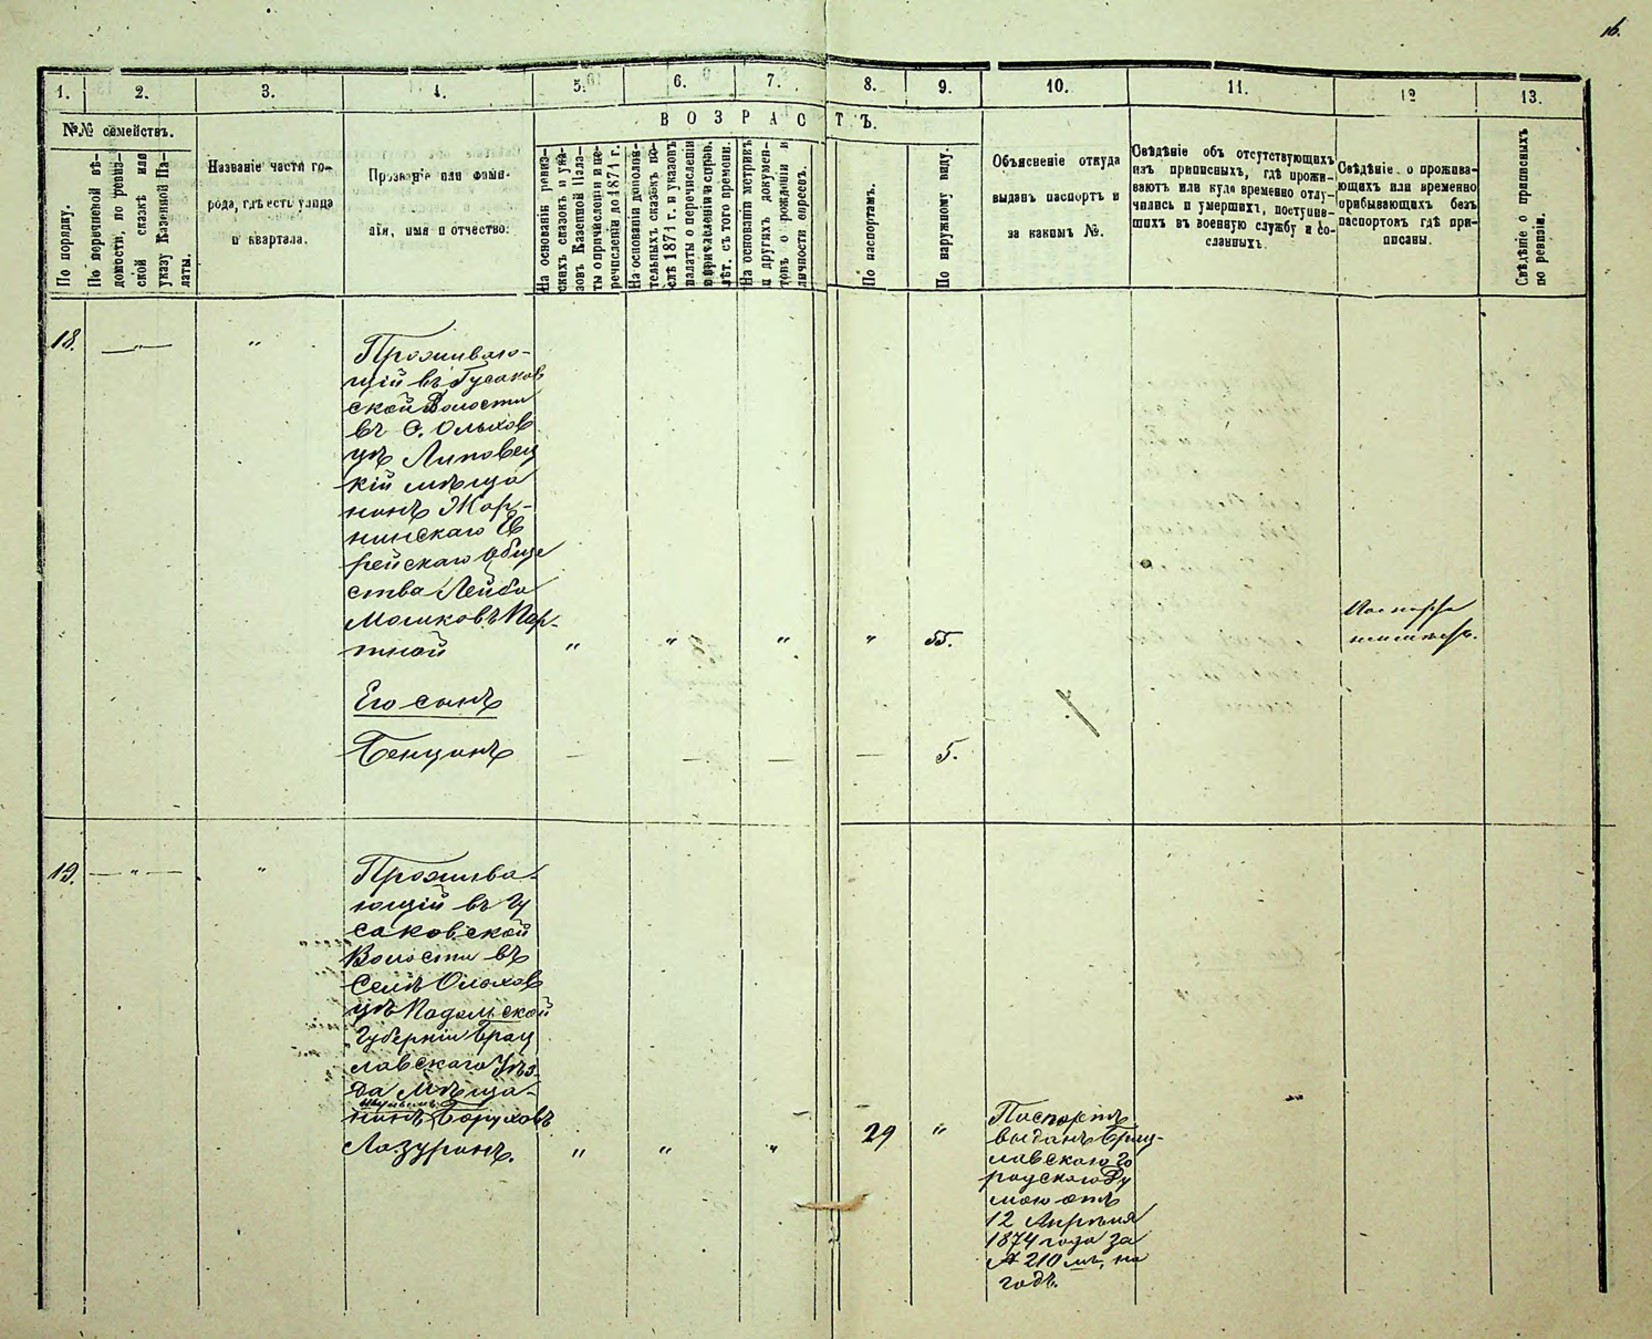 16.
1.
2.
3.
4.
5.
6.
7.
8.
9.
10.
11.
12
13.
№№ семействъ.
По порядку.
По поречневой вѣ-
домости, по ревиз-
ской сказкѣ или
указу Казенной Па-
латы.
Названіе части го-
рода, гдѣ есть улица
и квартала.
Прозваніе или фами-
лія, имя и отчество:
ВОЗРАСТЪ.
На основаніи ревиз-
скихъ сказокъ и ука-
зовъ Казенной Пала-
ты о причисленіи и пе-
речисленіи до 1871 г.
На основаніи дополни-
тельныхъ сказокъ по-
слѣ 1871 г. и указовъ
палаты о перечисленіи
и причисленіи и справ.
лѣт. съ того времени.
На основаніи метрикъ
и другихъ докумен-
товъ о рожденіи и
личности евреевъ.
По паспортамъ.
По наружному виду.
Объясненіе откуда
выданъ паспортъ и
за какимъ №.
Свѣдѣніе объ отсутствующихъ
изъ приписныхъ, гдѣ прожи-
ваютъ или куда временно отлу-
чились и умершихъ, поступив-
шихъ въ военную службу и со-
сланныхъ.
Свѣдѣніе о прожива-
ющихъ или временно
прибывающихъ безъ
паспортовъ гдѣ при-
писаны.
Свѣдѣніе о приписныхъ
по ревизіи.
18.
— " —
"
Проживаю-
щій въ Гусаков
ской Волости
въ С. Ольхов
цѣ Липовец
кій мѣща
нинъ Жор-
нинскаго Ев
рейскаго обще
ства Лейба
Мошковъ Пор-
тной
"
"
"
"
55.
Паспорта
неимѣетъ.
Его сынъ
Бенционъ
—
—
—
—
5.
19.
— " —
"
Прожива-
ющій въ Гу
саковской
Волости въ
Селѣ Ольхов
цѣ Подольской
Губерніи Брац
лавскаго Уѣз-
да Мѣща-
нинъ Боруховъ
Лазуринъ.
"
"
"
29
"
Паспортъ
выданъ Брац-
лавскою Го
родскою Ду
мою отъ
12 Апрѣля
1874 года за
№ 210 мъ, на
годъ.